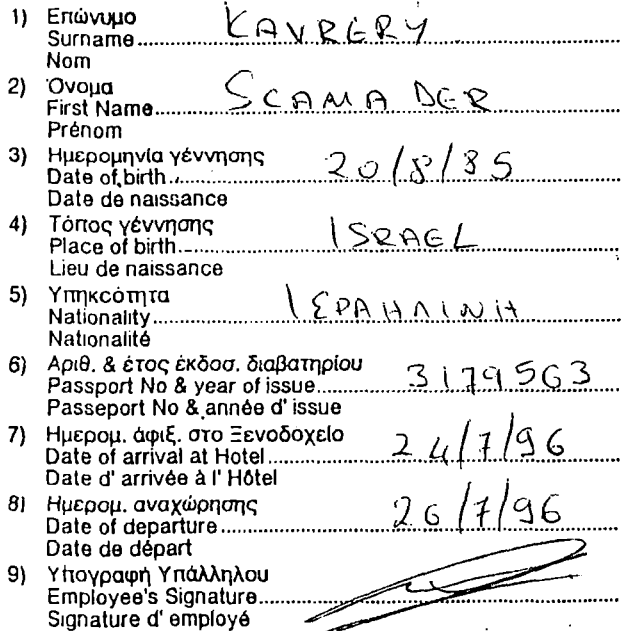 1) Επώνυμο
Surname KAVRERY
Nom
2) Όνομα
First Name SCAMADER
Prénom
3) Ημερομηνία γέννησης
Date of birth 20/8/35
Date de naissance
4) Τόπος γέννησης
Place of birth ISRAEL
Lieu de naissance
5) Υπηκοότητα
Nationality ΙΣΡΑΗΛΙΝΗ
Nationalité
6) Αριθ. & έτος έκδοσ. διαβατηρίου
Passport No & year of issue 3179563
Passeport No & année d' issue
7) Ημερομ. άφιξ. στο Ξενοδοχείο
Date of arrival at Hotel 24/7/96
Date d' arrivée à l' Hôtel
8) Ημερομ. αναχώρησης
Date of departure 26/7/96
Date de départ
9) Υπογραφή Υπάλληλου
Employee's Signature
Signature d' employé